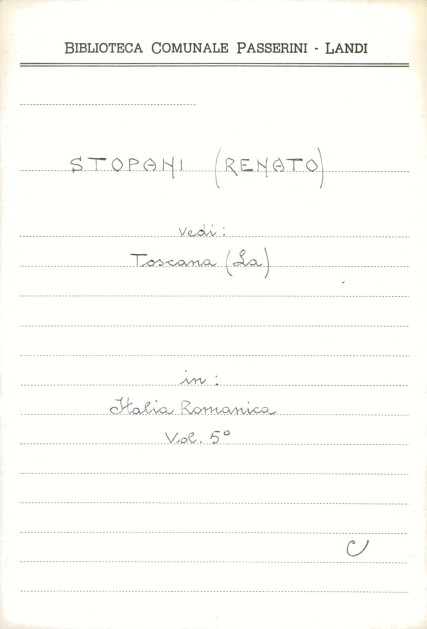 BIBLIOTECA COMUNALE PASSERINI - LANDI
STOPANI (RENATO)
vedi:
Toscana (La)
in:
Italia Romanica
Vol. 5°
C